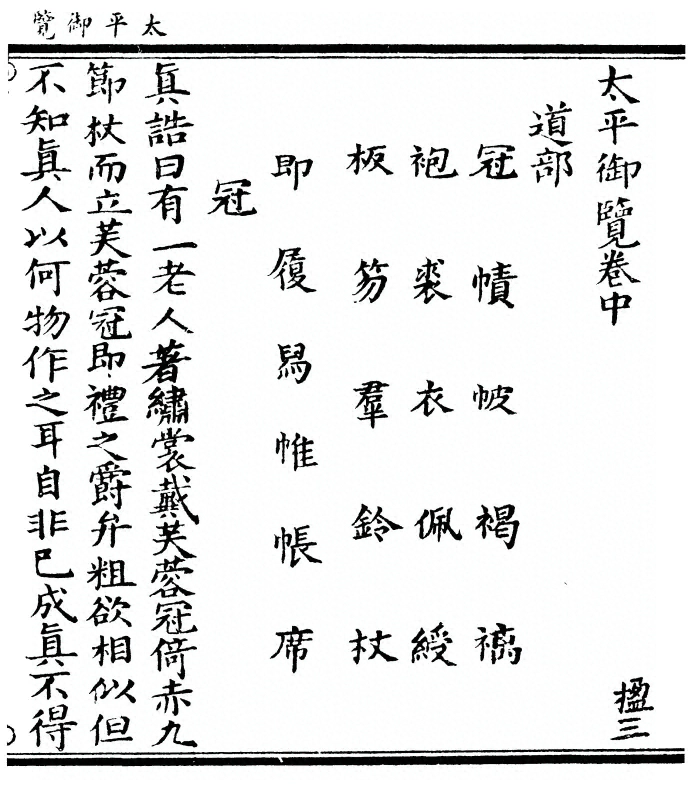 太平御覽
太平御覽卷中 楹三
道部
冠 幘 帔 褐 褵
袍 裘 衣 佩 綬
板 笏 羣 鈴 杖
即 履 舄 帷 帳 席
冠
眞誥曰有一老人著繡裳戴芙蓉冠倚赤九
節杖而立芙蓉冠即禮之爵弁粗欲相似但
不知眞人以何物作之耳自非巳成眞不得